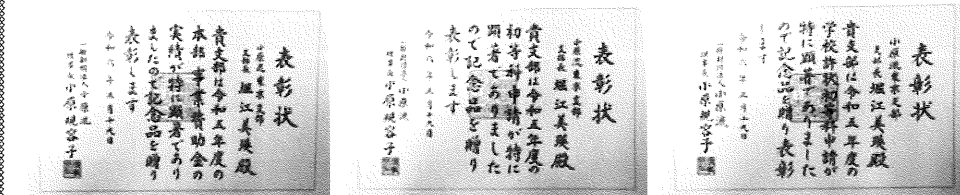 表彰状
小原流東京支部
支部長 堀江美瑛殿
貴支部は令和五年度の
本部事業費助金の
実績が特に顕著であり
ましたので記念品を贈り
表彰します
令和六年五月十九日
一般財団法人小原流
理事長 小原規容子
表彰状
小原流東京支部
支部長 堀江美瑛殿
貴支部は令和五年度の
初等科申請が特に
顕著でありました
ので記念品を贈り
表彰します
令和六年五月十九日
一般財団法人小原流
理事長 小原規容子
表彰状
小原流東京支部
支部長 堀江美瑛殿
貴支部は令和五年度の
学校許状初等科申請が
特に顕著でありました
ので記念品を贈り表彰
します
令和六年五月十九日
一般財団法人小原流
理事長 小原規容子